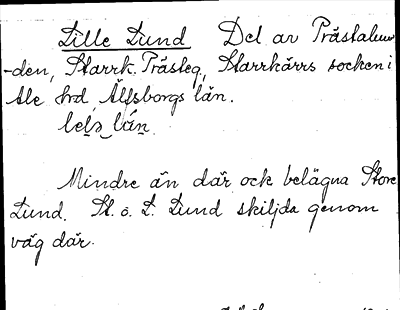 Lille Lund Del av Prästalun-
-den, Starrk. Prästeg., Starrkärrs socken i
Ale hrd, Älfsborgs län.

Mindre än där ock belägna Store
Lund. St. o. L. Lund skiljda genom
väg där.